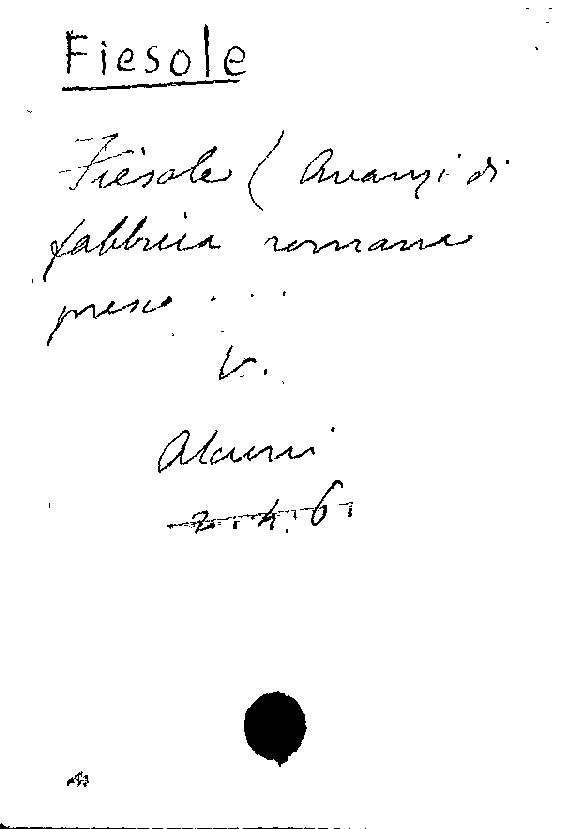 Fiesole
Fiesole ( Avanzi di
fabbrica romana
presso ...
V.
Alcuni
2.4.6.